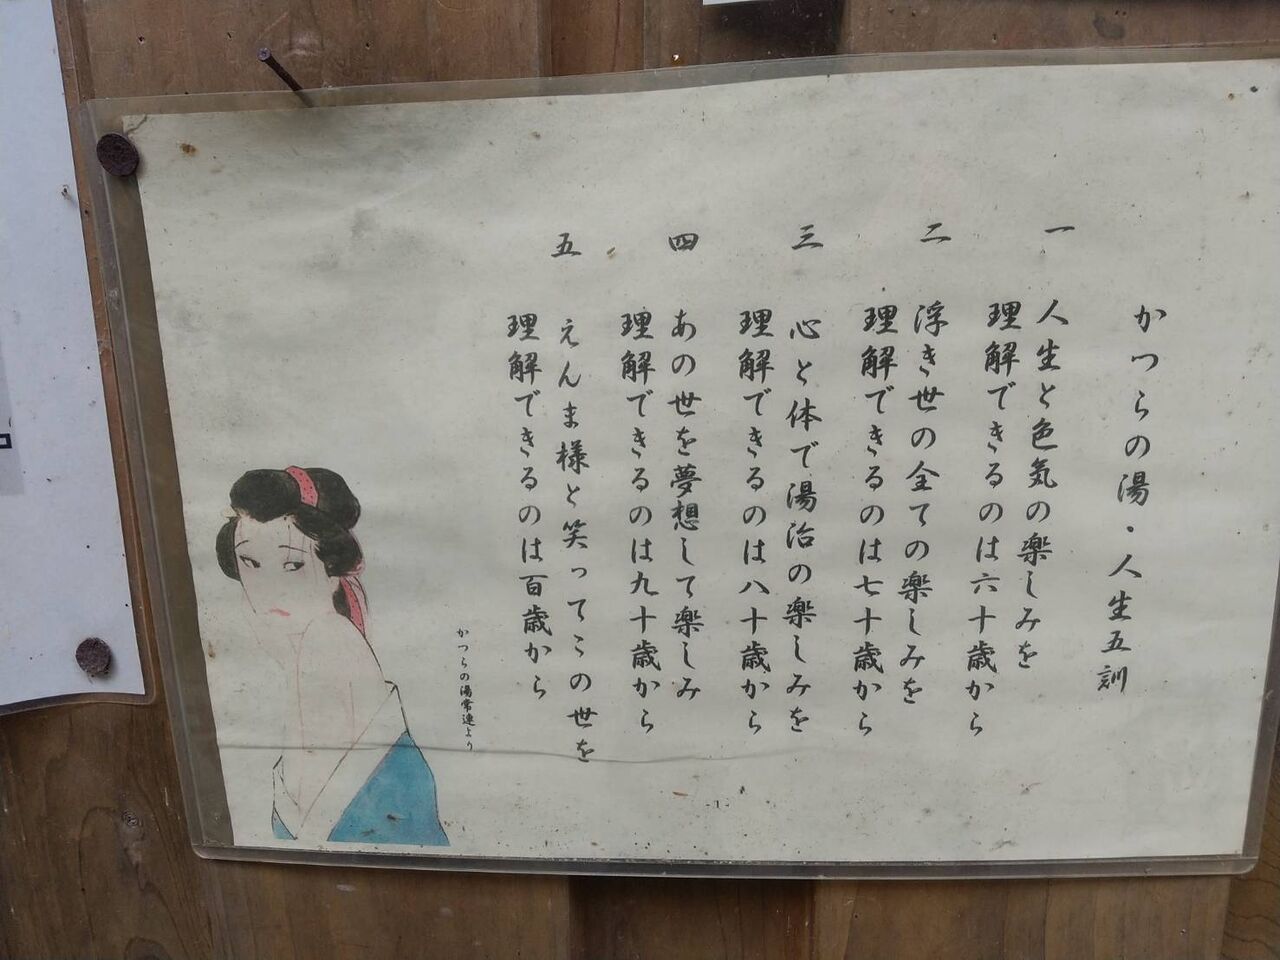 かつらの湯・人生五訓
一 人生と色気の楽しみを
理解できるのは六十歳から
二 浮き世の全ての楽しみを
理解できるのは七十歳から
三 心と体で湯治の楽しみを
理解できるのは八十歳から
四 あの世を夢想して楽しみ
理解できるのは九十歳から
五 えんま様と笑ってこの世を
理解できるのは百歳から
かつらの湯常連より